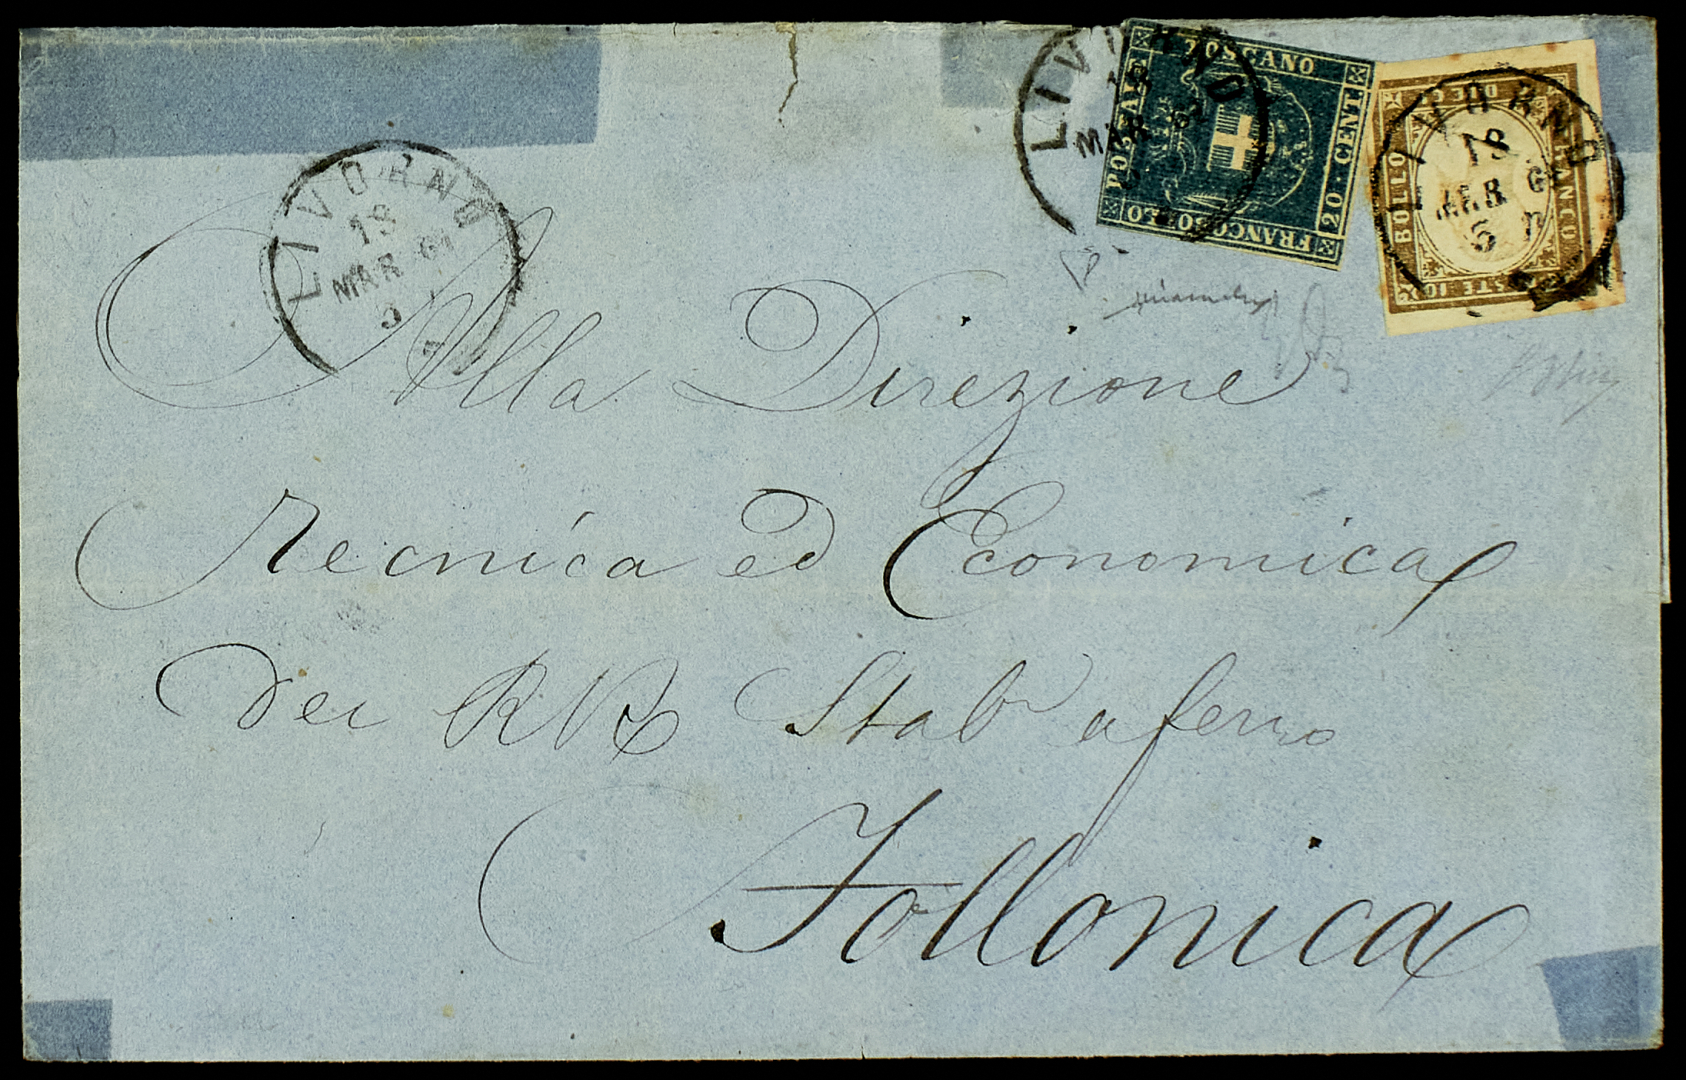 LIVORNO
18
MAR 61
LIVORNO
18
MAR 61
FRANCOBOLLO
POSTALE
TOSCANO
20 CENT.
LIVORNO
18
MAR 6
5
BOLLO
Alla Direzione
Tecnica ed Economica
Dei RR Stab a ferro
Follonica